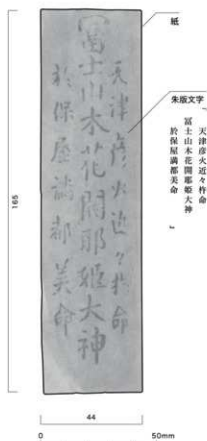 紙
朱版文字
「天津彦火近々杵命
冨士山木花開耶姫大神
於保屋満都美命」
天津彦火近々杵命
冨士山木花開耶姫大神
於保屋満都美命
165
44
0 50mm